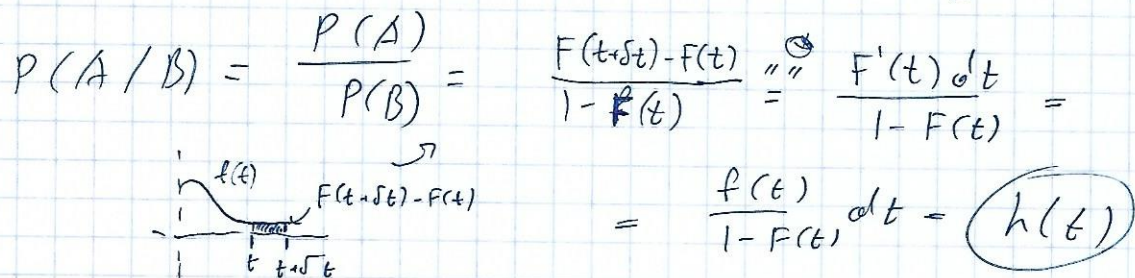 P(A/B) = P(A) / P(B) = F(t+δt) - F(t) / 1 - F(t) "=" F'(t) dt / 1 - F(t) =
f(t)
F(t+δt) - F(t)
t t+δt
= f(t) / 1 - F(t) dt - h(t)